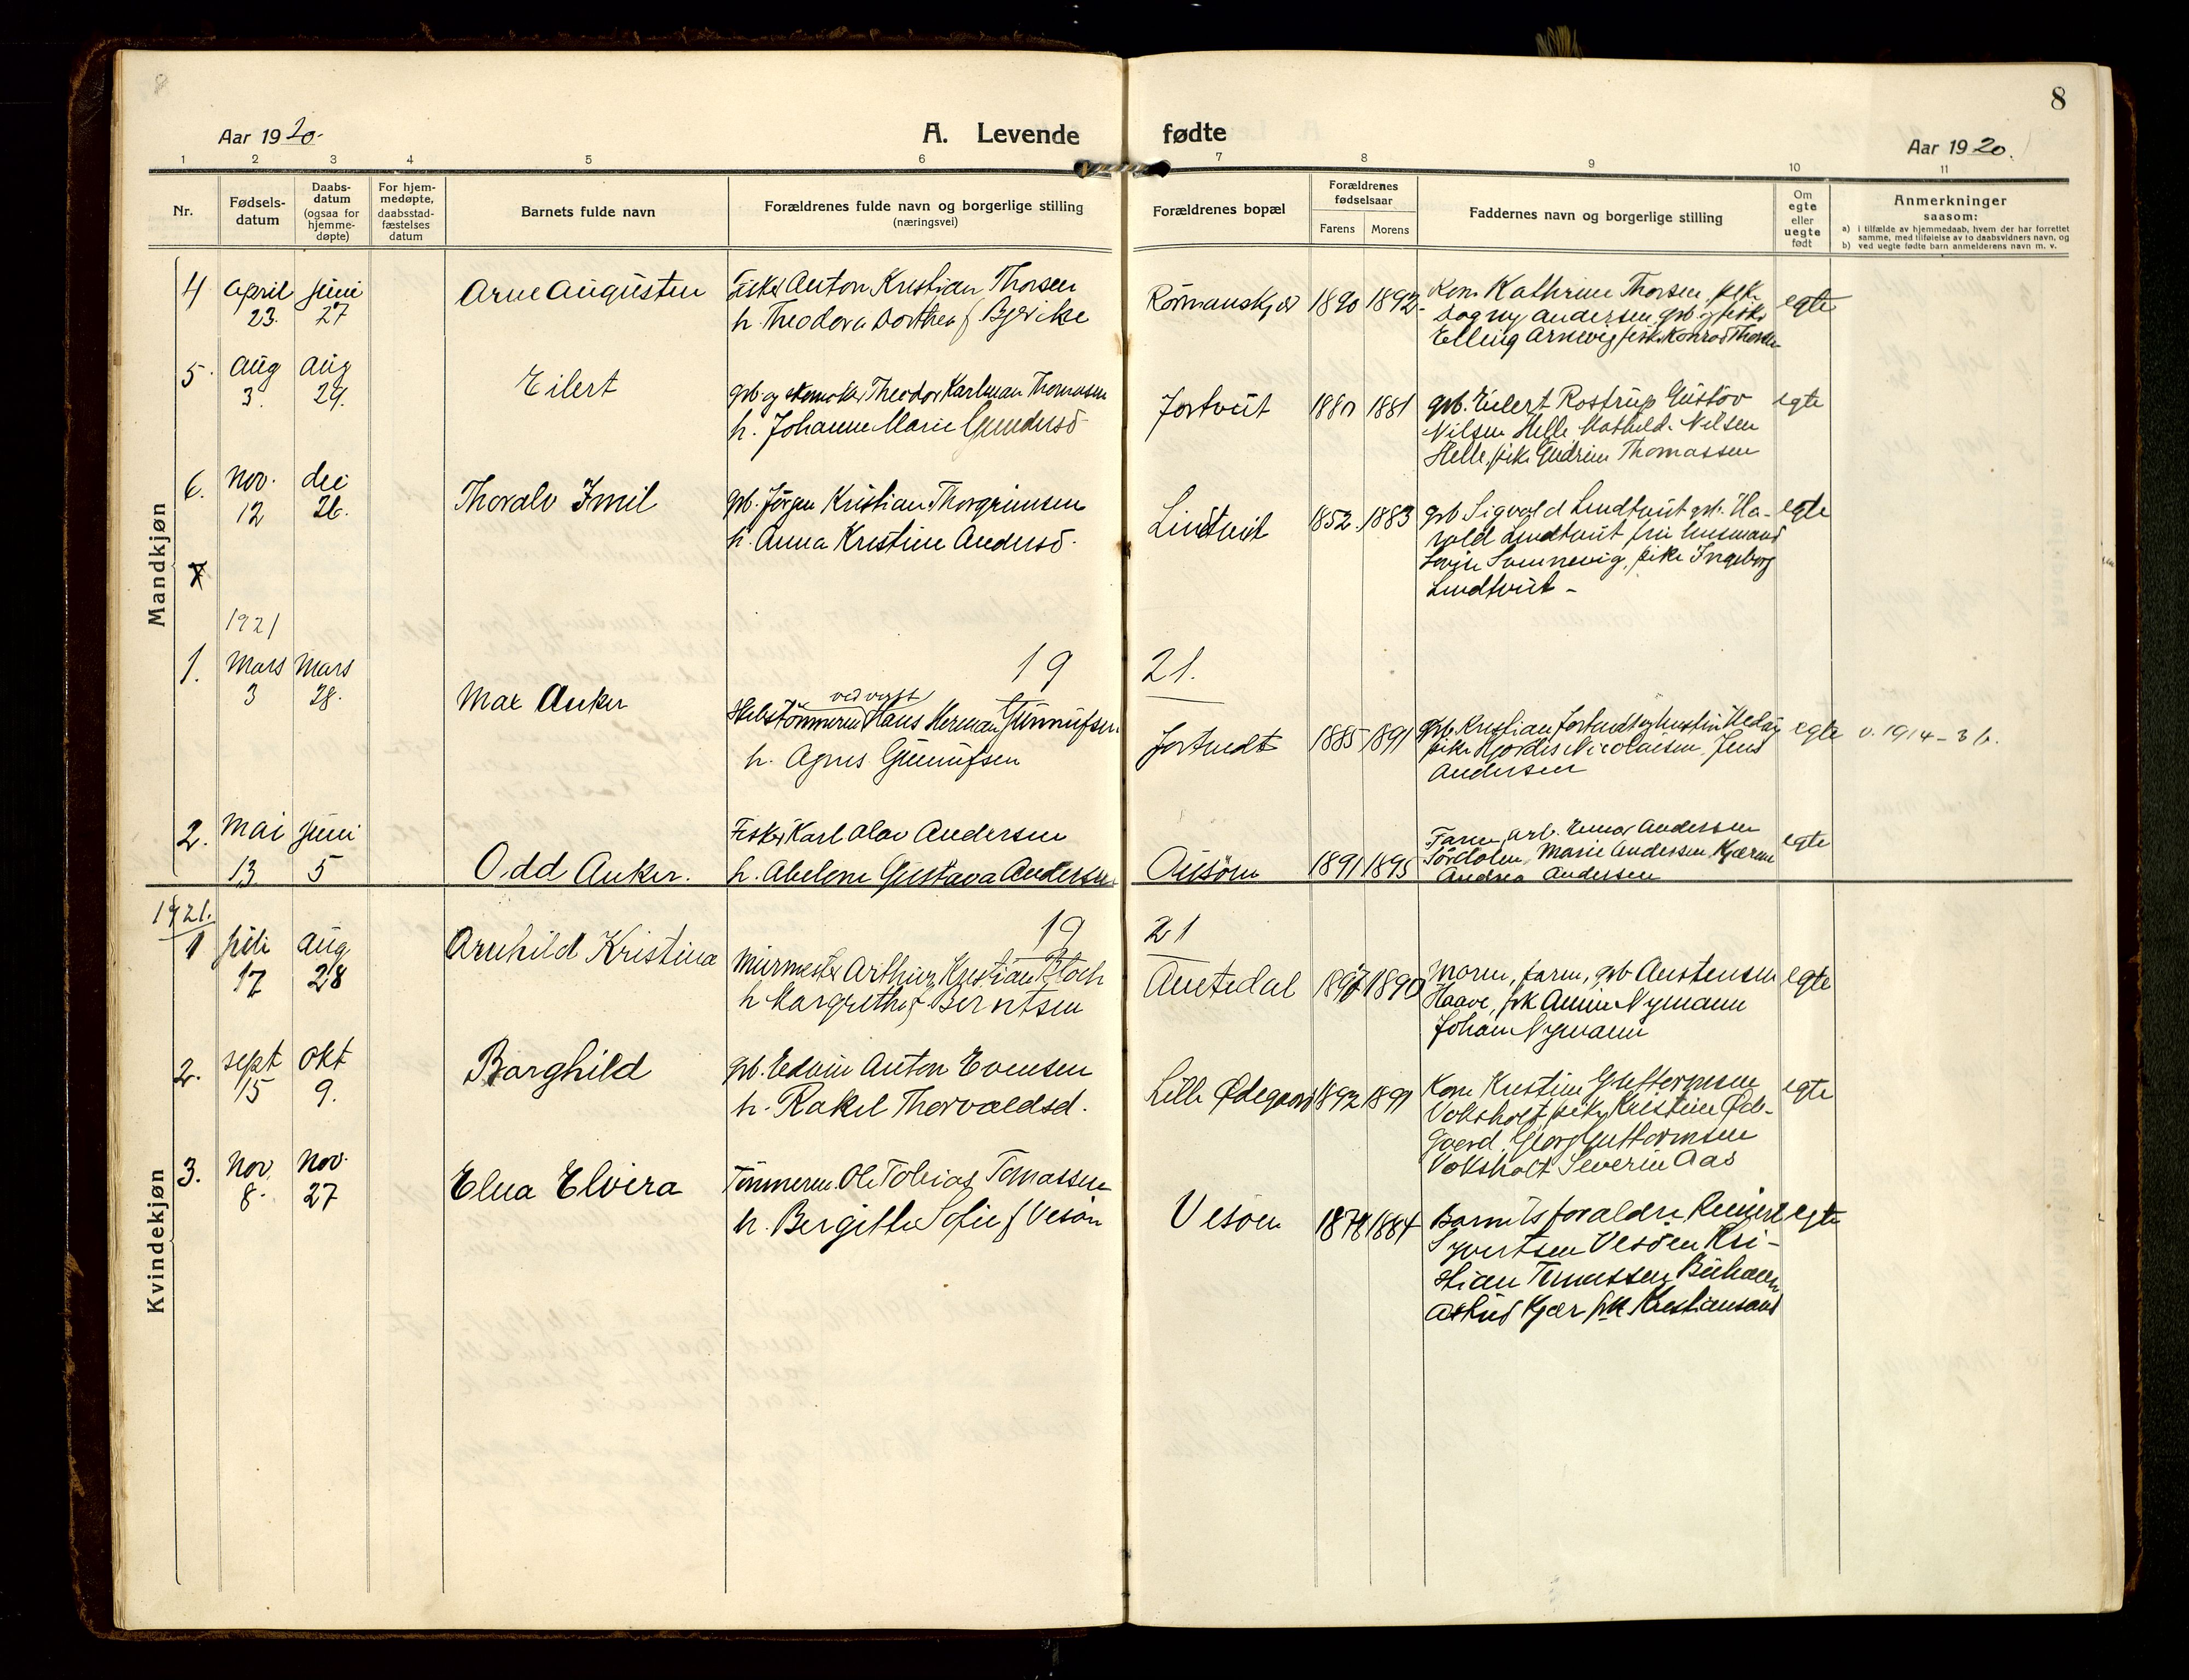 8
8
Aar 1920.
A. Levende fødte
Aar 1920.
1 2 3 4 5 6 7 8 9 10 11
Nr.
Fødsels-
datum
Daabs-
datum
(ogsaa for
hjemme-
døpte)
For hjem-
medøpte,
daabsstad-
fæstelses
datum
Barnets fulde navn
Forældrenes fulde navn og borgerlige stilling
(næringsvei)
Forældrenes bopæl
Forældrenes
fødselsaar
Farens Morens
Faddernes navn og borgerlige stilling
Om
egte
eller
uegte
født
Anmerkninger
saasom:
a) i tilfælde av hjemmedaab, hvem der har forrettet
samme, med tilføielse av to daabsvidners navn, og
b) ved uegte fødte barn anmelderens navn m. v.
Mandkjøn
4 April 23. Juni 27
Arne Augusten
Fisker Anton Kristian Thorsen
h. Theodora Dorthea f Bjerike
1890 1892
Kone Kathrine Thorsen, pike
Dagny Andersen, grb. og fisker
Elling Arnevig, fisk. Konrad Thorsen
egte
5. Aug 3. Aug 29.
Eilert
grb og Theodor Karlman Thomassen
h. Johanne Marie Gundersd
Jortveit
1880 1881
grb. Eilert Rostrup Gustav
Nilsen Helle Mathild. Nilsen
Helle, pike Gudrun Thomassen
egte
6. Nov. 12 dec 26.
Thoralv Emil
grb. Jørgen Kristian Thorgrimsen
h. Anna Kristine Andersd.
Lindtveit
1852. 1883
grb Sigvald Lindtveit grb. Ha-
rald Lindtveit fru husmand
Sennevig, pike Ingeborg
Lindtveit -
egte
7
1921
19 21.
1. Mars 3 Mars 28.
Max Anker
ved verft
Tømmerm Hans Herman Gunnufsen
h. Agnes Gunnufsen
Jortvedt
1885 1891
grb. Kristian Jortveit og hustru Hedvig
pike Hjørdis Nicolaisen, Jens
Andersen
egte
v. 1914 - 3 b.
2. Mai 13 Juni 5
Odd Anker.
Fisker Karl Olav Andersen
h. Abelone Gustava Andersen
1891 1895
Faren, arb. Einar Andersen
Sørdalen, Marie Andersen Kjæren
Andrea Andersen
egte
Kvindekjøn
1921.
19 21
1 Juli 17 Aug 28
Arnhild Kristina
Murmester Arthur Kristian Bloch
h Margrethe f Berntsen
Austedal
1897 1890
Moren, faren, grb Austensen
Haave, frk Anne Nymann
Johan Nymann
egte
2. sept 15 okt 9.
Borghild
grb. Edvin Anton Evensen
h. Rakel Thorvaldsd.
Lille Ødegaard
1892 1891
Kone Kristine Guttormsen
Voksholt, pike Kristine Øde-
gaard, Georg Guttormsen
Voksholt Severin Aas
egte
3. Nov 8. Nov. 27
Elna Elvira
Tømmerm. Ole Tobias Tomassen
h. Bergitte Sofie f Vesøen
Vesøen
1878 1884
Barnets forældre Reinert
Syvertsen Vesøen Kri-
stian Tomassen
Astrid Kjær frk Kristiansand
egte